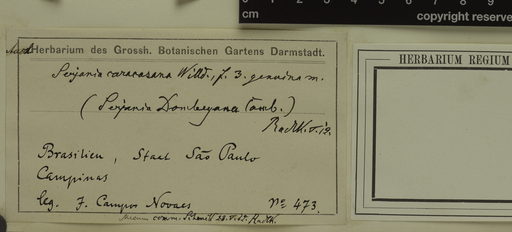 cm
copyright reserve
Herbarium des Grossh. Botanischen Gartens Darmstadt.
Serjania caracasana Willd., f. 3. genuina m.
(Serjania Dombeyana Camb.)
Radlk.
Brasilien, Staat São Paulo
Campinas
leg. J. Campos Novaes No 473.
comm. Radlk.
HERBARIUM REGIUM